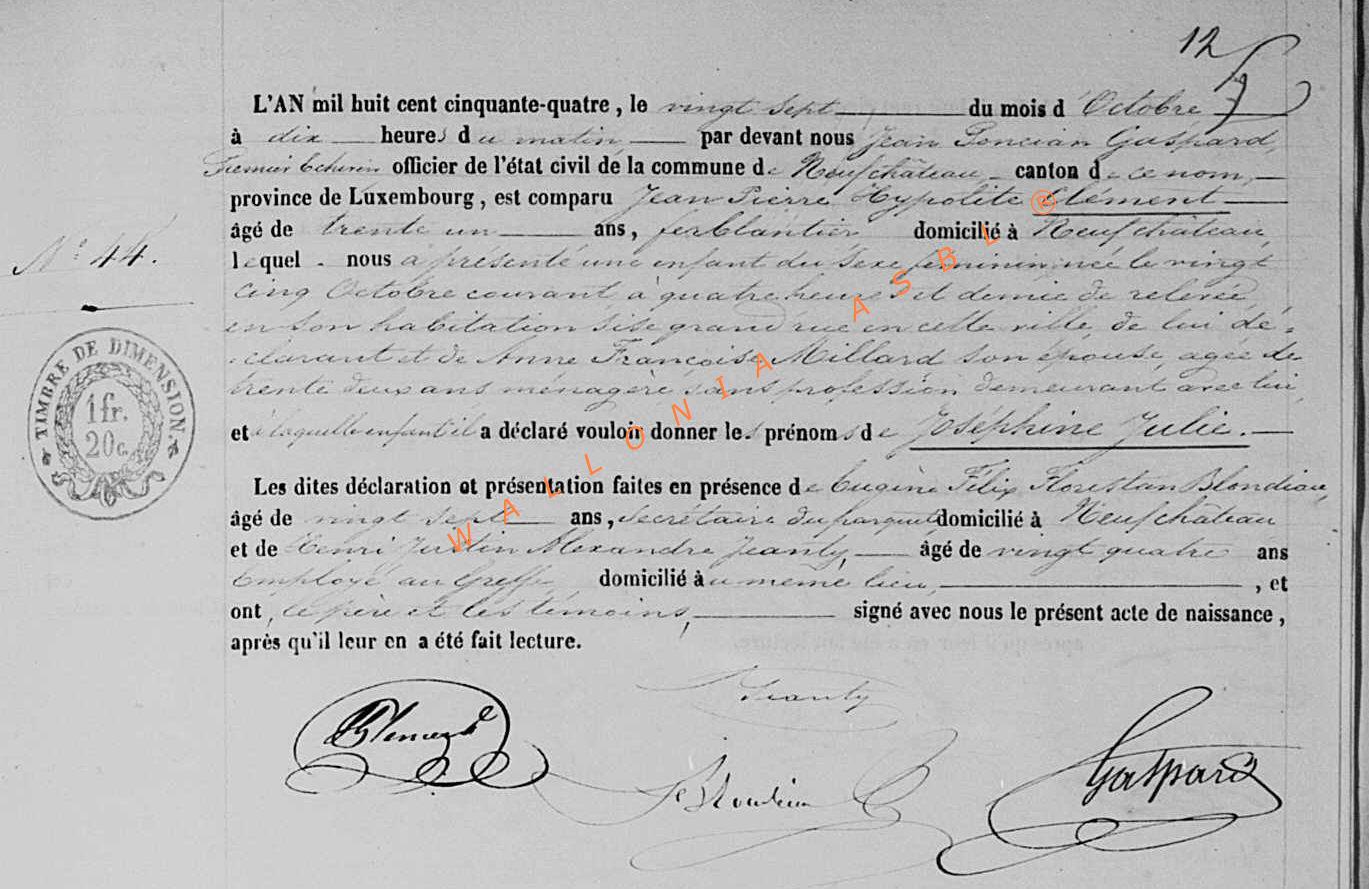 12
L'AN mil huit cent cinquante-quatre, le vingt sept du mois d'Octobre
à dix heures du matin par devant nous Jean Poncian Gaspard,
Premier Echevin officier de l'état civil de la commune de Neufchâteau canton de ce nom,
province de Luxembourg, est comparu Jean Pierre Hypolite Clément
âgé de trente un ans, ferblantier domicilié à Neufchâteau,
N° 44.
lequel nous a présenté une enfant du sexe feminin, née le vingt
cinq Octobre courant à quatre heures et demie de relevée,
en son habitation sise grand rue en cette ville, de lui dé=
clarant et de Anne Françoise Millard son épouse, agée de
trente deux ans ménagère sans profession demeurant avec lui,
et à laquelle enfant il a déclaré vouloir donner les prénoms de Joséphine Julie.
Les dites déclaration et présentation faites en présence de Eugène Félix Florestan Blondiau,
âgé de vingt sept ans, secrétaire du parquet domicilié à Neufchâteau
et de Henri Justin Alexandre Jeanty, âgé de vingt quatre ans
Employé au Greffe, domicilié au meme lieu, , et
ont, le père et les témoins, signé avec nous le présent acte de naissance,
après qu'il leur en a été fait lecture.
TIMBRE DE DIMENSION
1 fr.
20 c.
Jeanty
Clement
Blondiau
Gaspard
WALLONIA ASBL ®